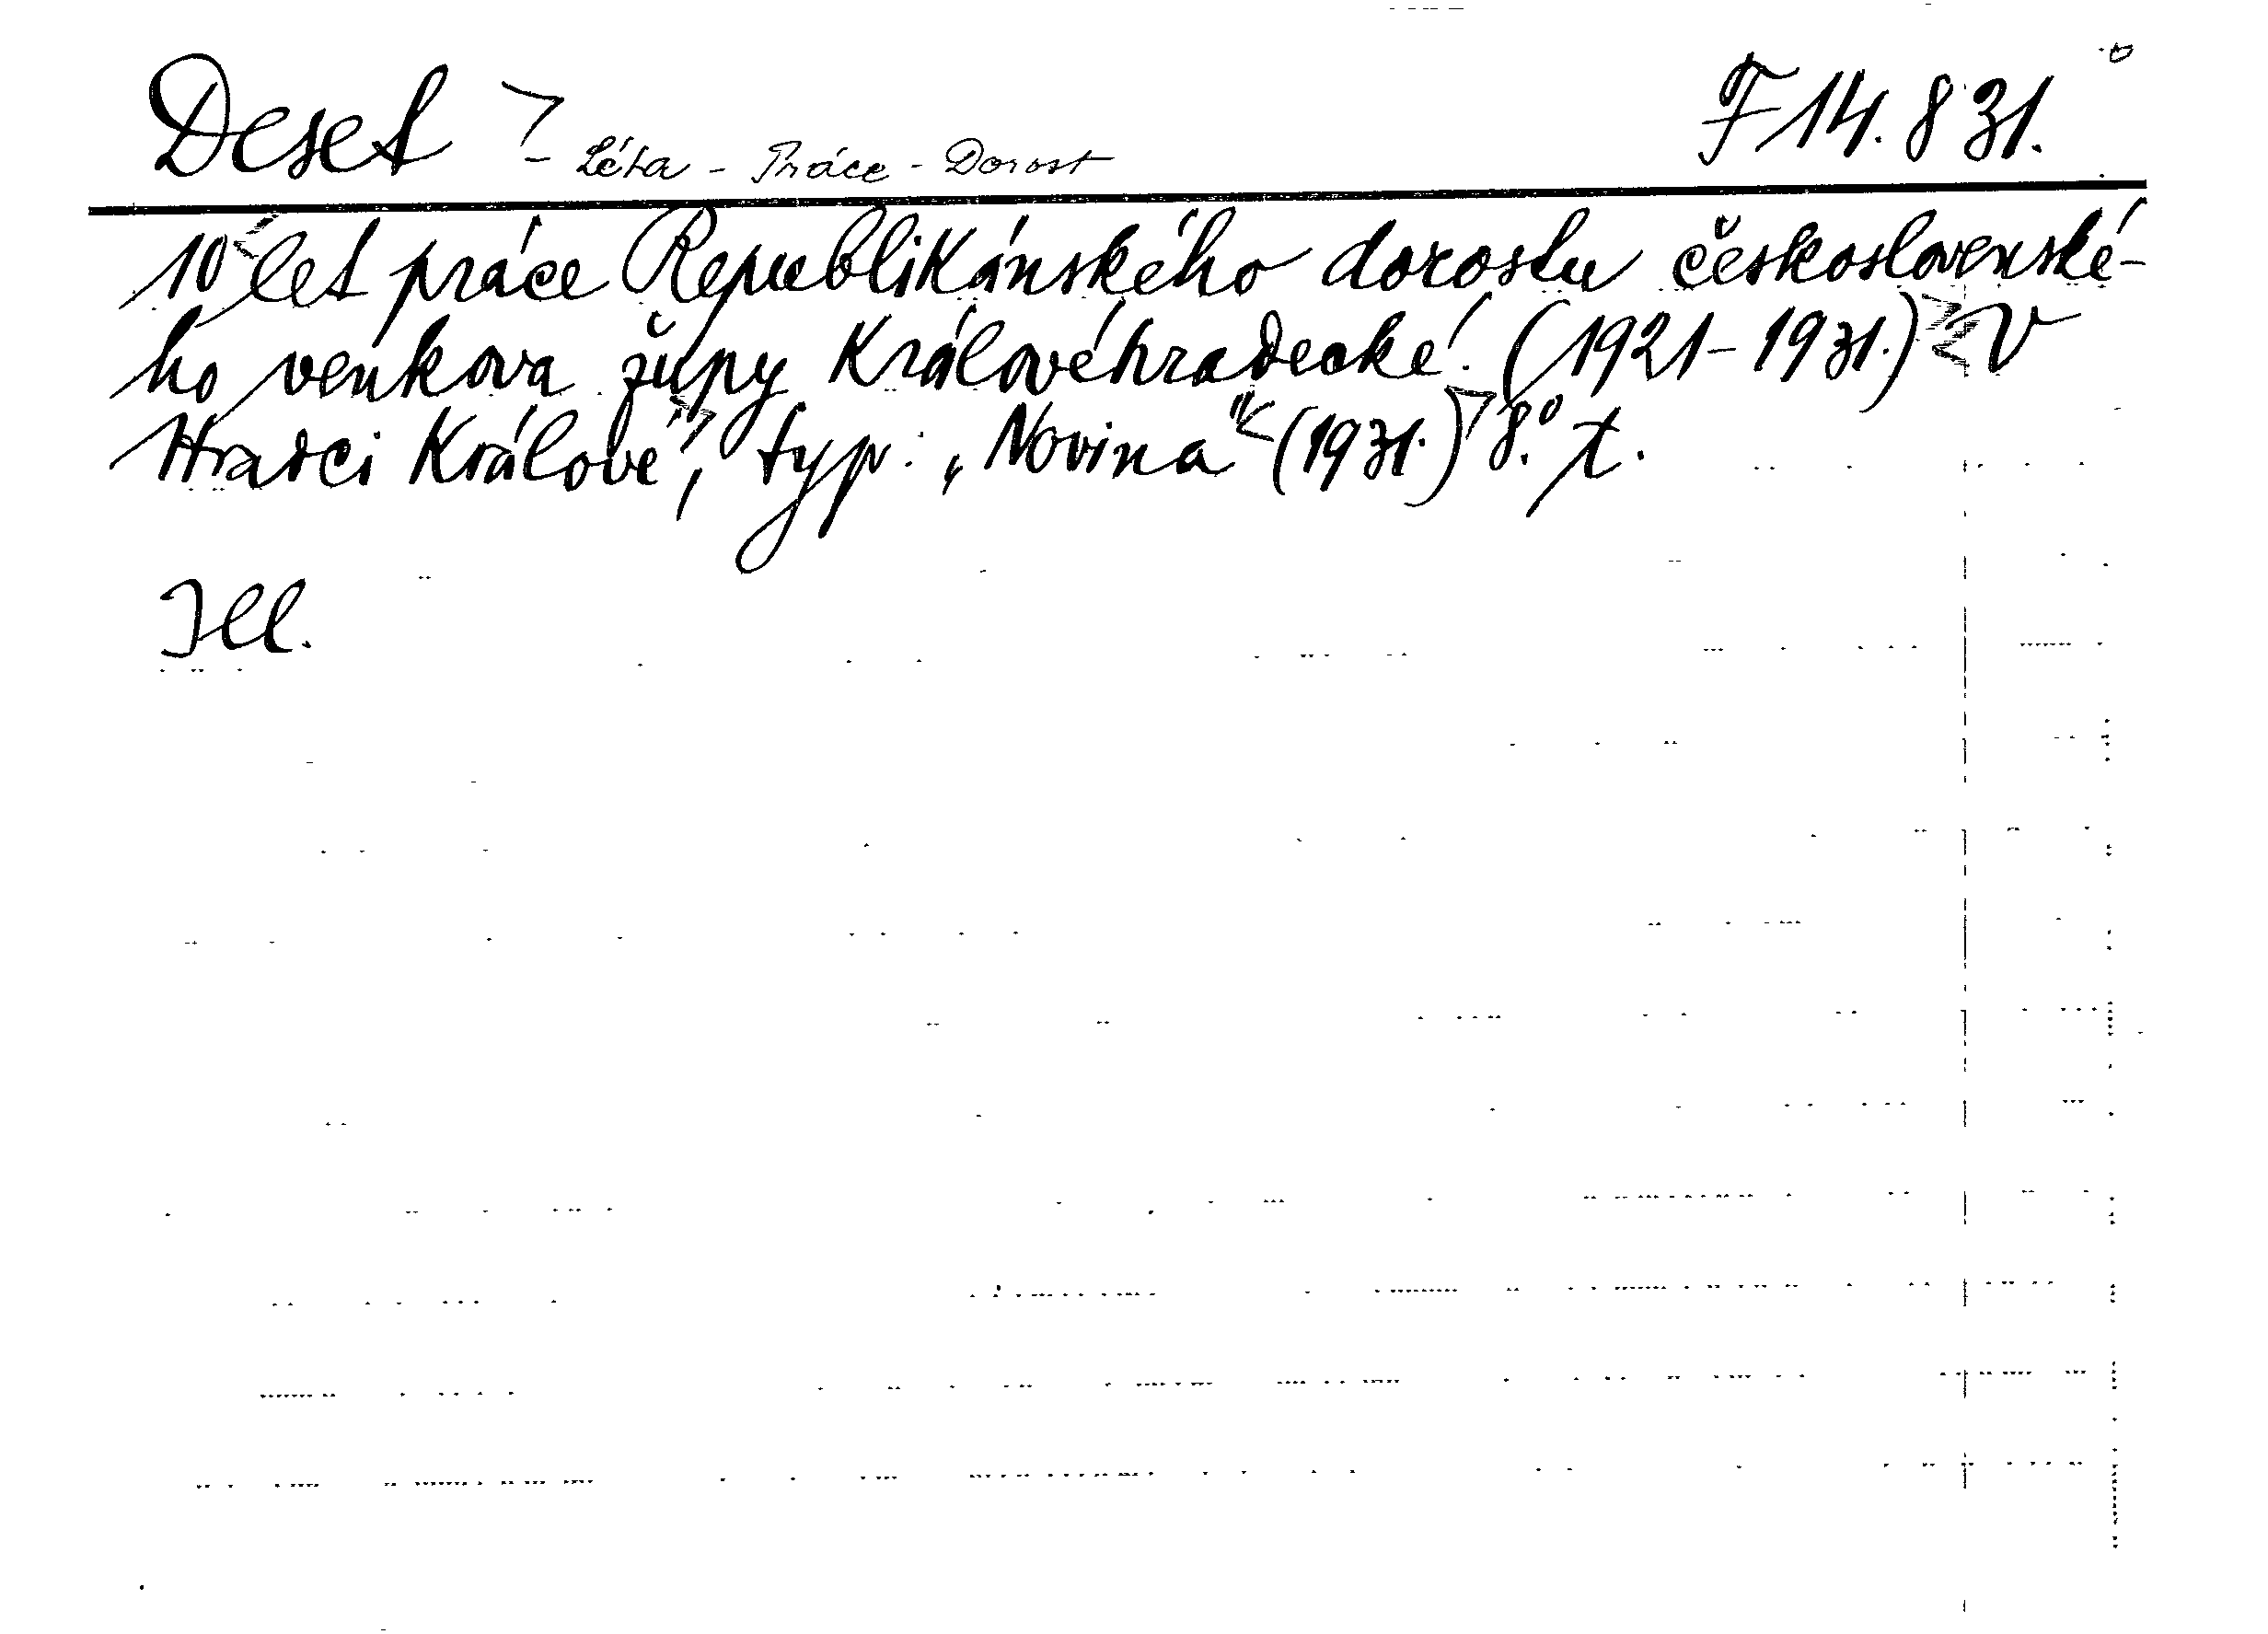 Deset - Léta - Práce - Dorost F 14.831.
10 let práce Republikánského dorostu československé-
ho venkova župy Královéhradecké. (1921-1931.) V
Hradci Králové, typ: „Novina" (1931.) 8.° t.
Ill.